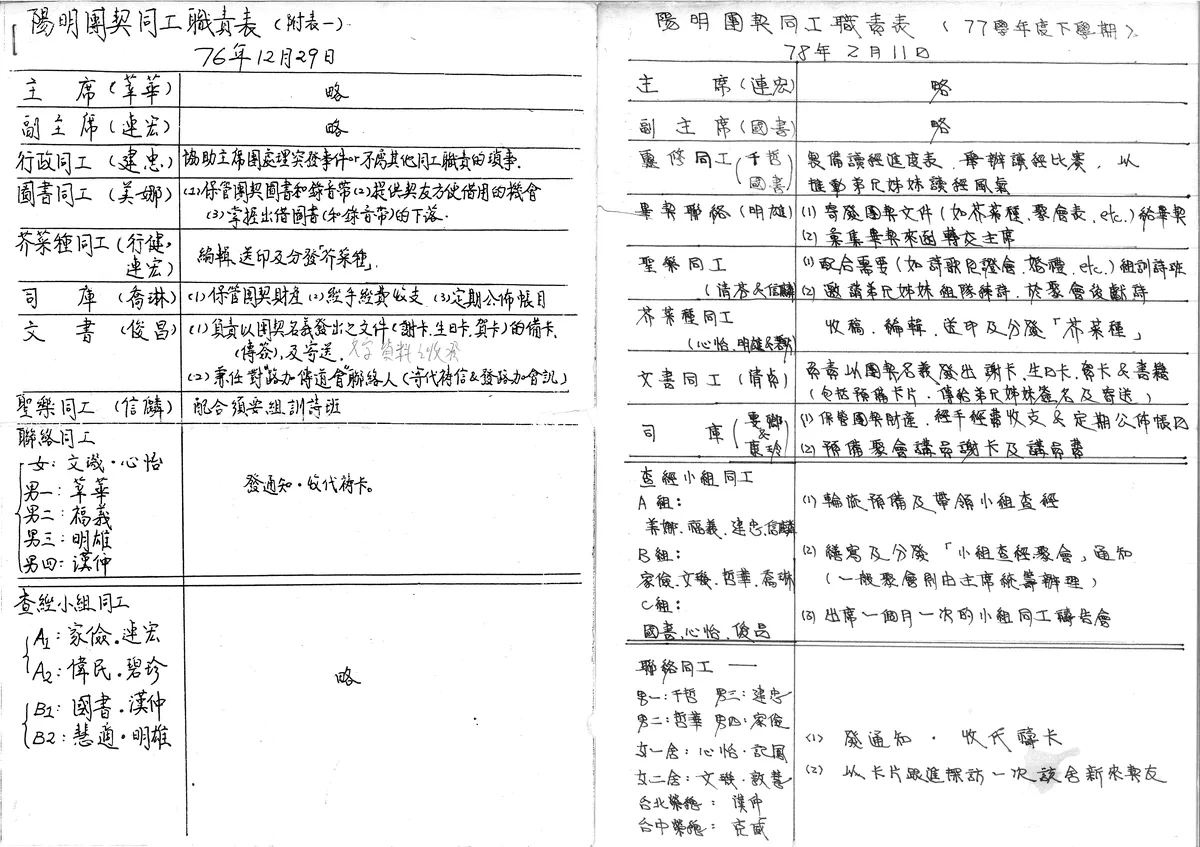 陽明團契同工職責表(附表一)
76年12月29日
主 席(莘華) 略
副主席(連宏) 略
行政同工(建忠) 協助主席團處理突發事件or不屬其他同工職責的瑣事.
圖書同工(美娜) (1)保管團契圖書和錄音帶(2)提供契友方便借用的機會
(3)掌握出借圖書(和錄音帶)的下落.
芥菜種同工(行健,
連宏) 編輯、送印及分發「芥菜種」.
司 庫(喬琳) (1)保管團契財產(2)經手經費收支 (3)定期公佈帳目
文 書(俊昌) (1)負責以團契名義發出之文件(謝卡、生日卡、賀卡)的備卡、
(傳簽),及寄送. 文字資料之收發
(2)兼任對"路加傳道會"聯絡人(寄代禱信&發路加會訊)
聖樂同工(信麟) 配合須要組訓詩班
聯絡同工
女:文璣・心怡
男一:莘華
男二:福義
男三:明雄
男四:漢仲
發通知・收代禱卡。
查經小組同工
A1:家儉・連宏
A2:偉民・碧珍
B1:國書・漢仲
B2:慧適・明雄
略
陽明團契同工職責表(77學年度下學期)
78年2月11日
主 席(連宏) 略
副主席(國書) 略
靈修同工(千哲
國書)
製備讀經進度表、舉辦讀經比賽,以
推動弟兄姊妹讀經風氣
畢契聯絡(明雄) (1) 寄發團契文件(如芥菜種、聚會表、etc.)給畢契
(2) 彙集畢契來函轉交主席
聖樂同工 (1) 配合需要(如詩歌見證會、婚禮、etc.)組訓詩班
(2) 邀請弟兄姊妹組隊練詩,於聚會後獻詩
芥菜種同工
收稿、編輯、送印及分發「芥菜種」
文書同工(倩貞) 負責以團契名義發出謝卡、生日卡、賀卡&書籍
(包括預備卡片、傳給弟兄姊妹簽名及寄送)
司 庫
(1) 保管團契財產、經手經費收支&定期公佈帳目
(2) 預備聚會講員謝卡及講員費
查經小組同工
A組:
美娜、福義、建忠、信麟
B組:
家儉、文璣、哲華、喬琳
C組:
國書、心怡、俊昌
(1) 輪流預備及帶領小組查經
(2) 繕寫及分發「小組查經聚會」通知
(一般聚會則由主席統籌辦理)
(3) 出席一個月一次的小組同工禱告會
聯絡同工 —
男一:千哲 男三:建忠
男二:哲華 男四:家儉
女一舍:心怡・記鳳
女二舍:文璣・敦慧
台北榮總: 漢仲
台中榮總: 克威
(1) 發通知・收代禱卡
(2) 以卡片跟進探訪一次該舍新來契友